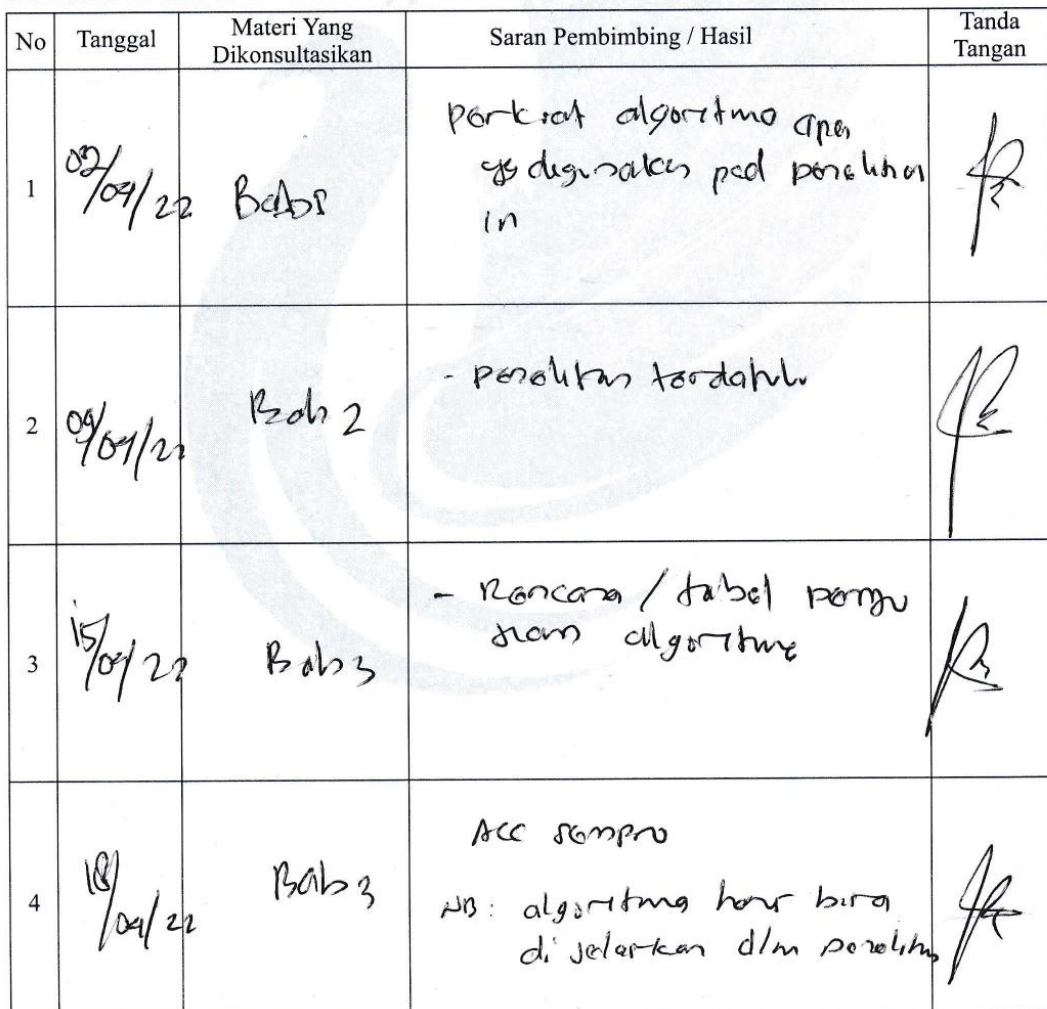 No Tanggal Materi Yang Dikonsultasikan Saran Pembimbing / Hasil Tanda Tangan
1 02/09/22 Bab 1 algoritma apa
yg digunakan pad penelitian
in
2 09/09/22 Bab 2 - penelitian terdahulu
3 15/09/22 Bab 3 - Rencana / tabel pengu
jian algoritma
4 18/09/22 Bab 3 ACC sempro
NB: algoritma harus bisa
di jelaskan dlm penelitian